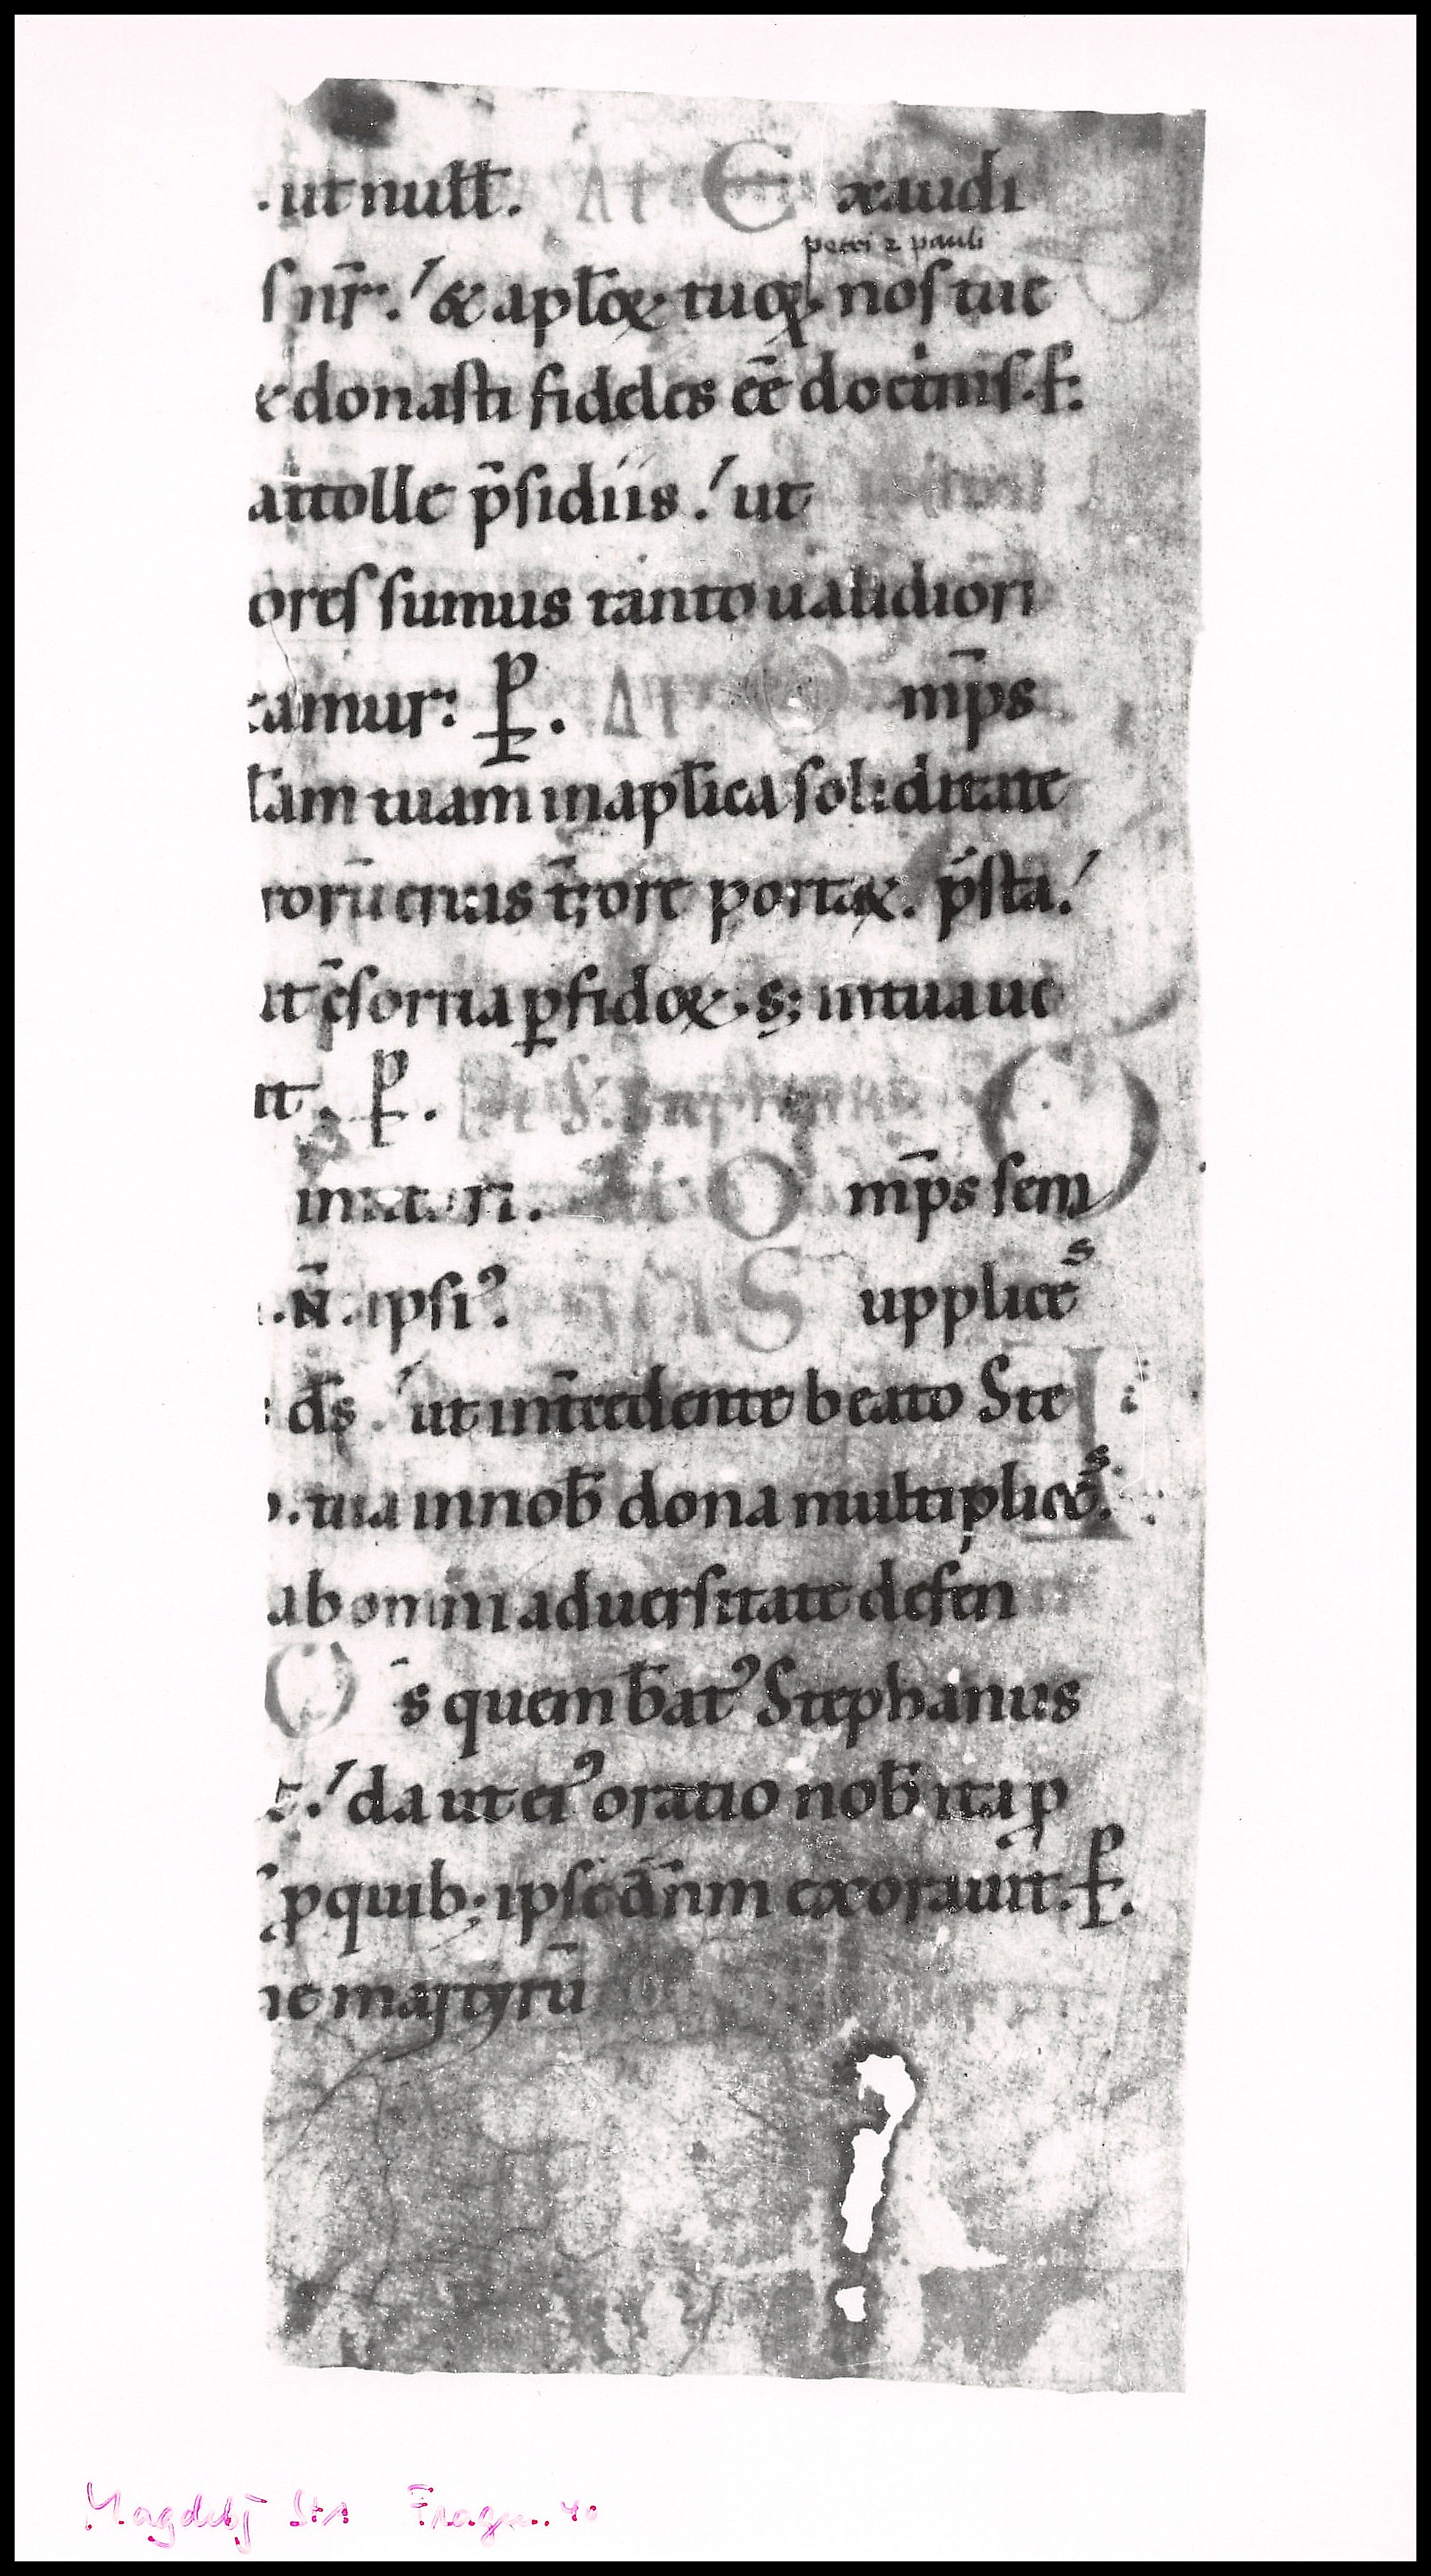 . ut null̄. At Exaudi
petri ⁊ pauli
s nr̄. & apl̄oꝝ tuoꝝ. nos tue
& donasti fideles eē doctinis. f:
attolle p̄sidiis. ut
ores sumus tanto ualidiori
amur: P. At O mp̄s
l̄am tuam in apl̄ica soliditate
rorū eruas t̄rore portaꝝ. p̄sta.
it c̄sortia ꝑfidoꝝ. s; in tua ue
it. P.
O mp̄s sem
.N̄. ipsiꝰ S upplicēs
: ds̄. ut int̄cedente beato Ste
. tua in nob̄ dona multiplicēs.
ab omni aduersitate defen
O s̄ quem b̄atꝰ Stephanus
t. da ut eiꝰ oratio nob̄ ita ꝓ
ꝓ quib; ipse dn̄m exorauit. P.
ne martyrū
Magdebg StA Fragm. 40